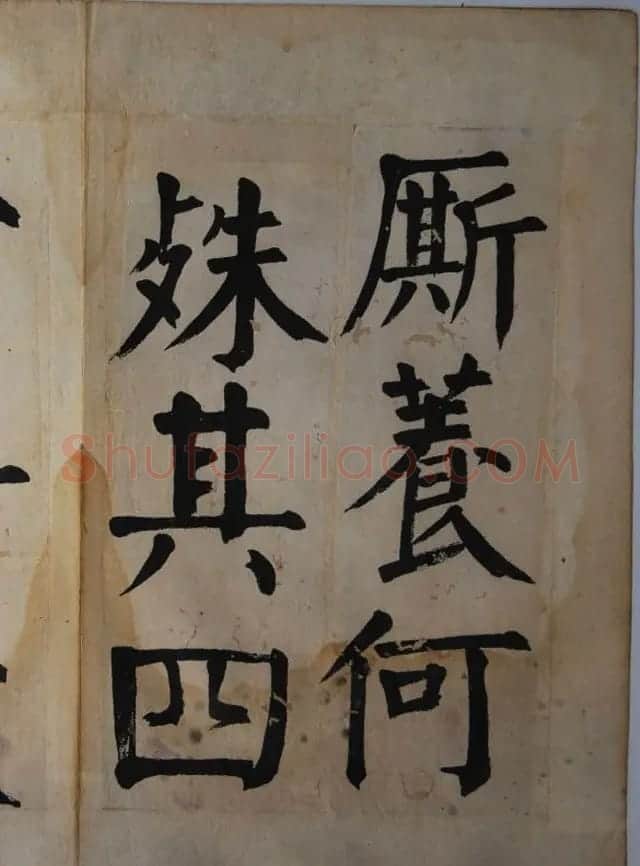 厮養何
殊其四
Shufaziliao.COM